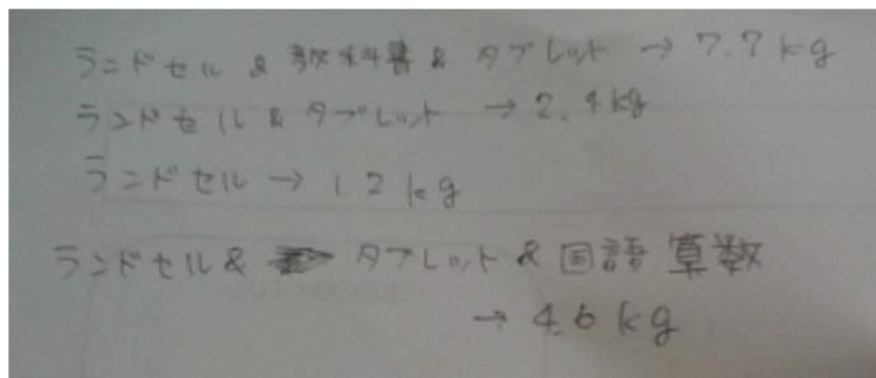 ランドセル & 教科書 & タブレット → 7.7kg
ランドセル & タブレット → 2.4kg
ランドセル → 1.2kg
ランドセル & タブレット & 国語 算数
→ 4.6kg